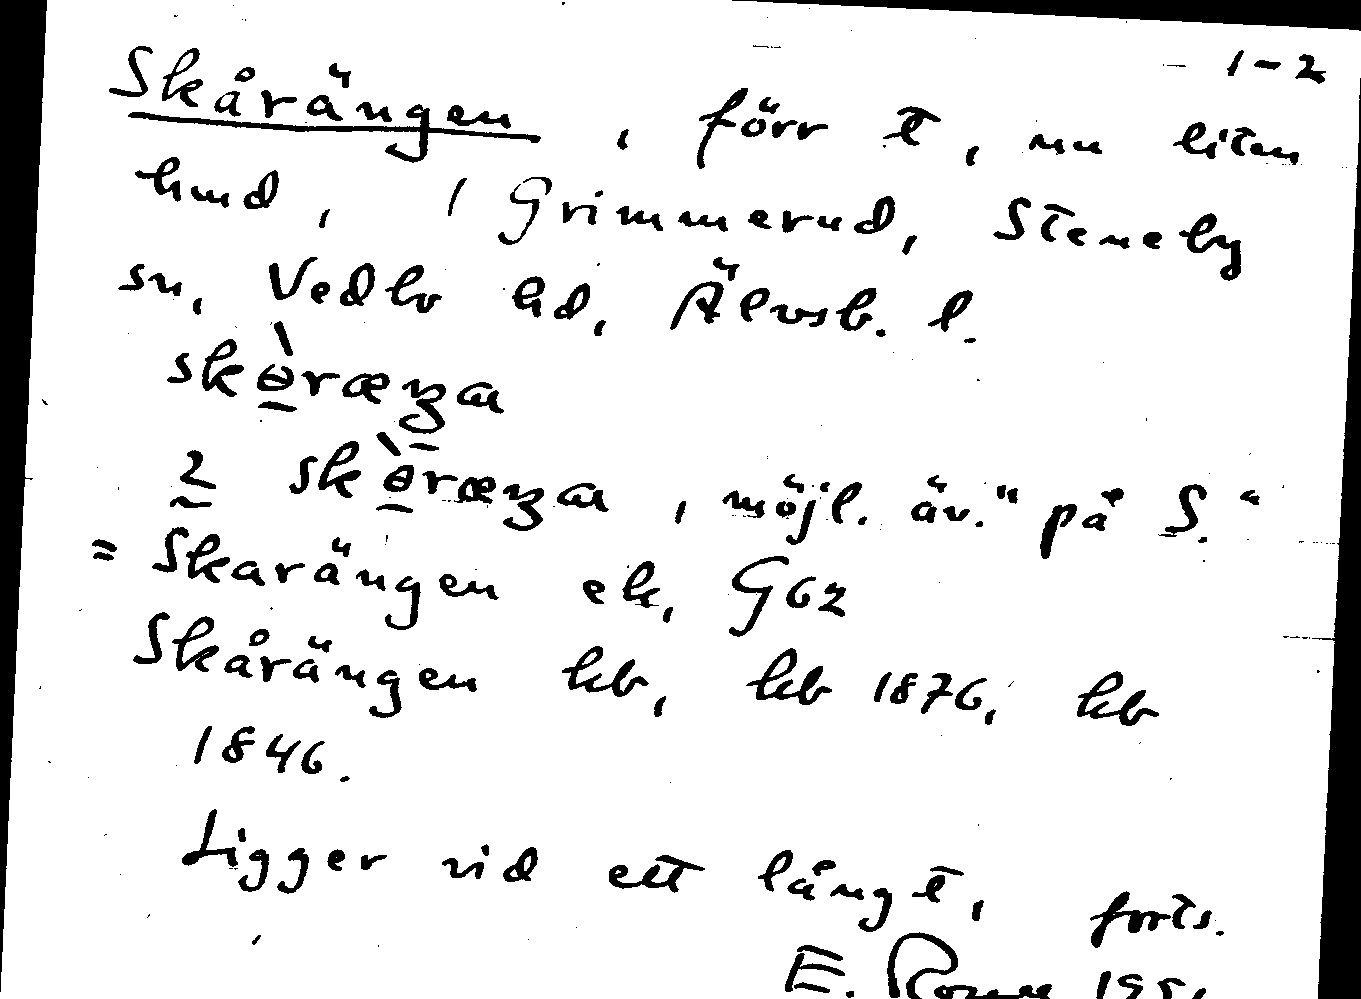 1-2
Skårängen, förr t, nu liten
hmd, i Grimmerud, Steneby
sn, Vedbo hd, Älvsb. l.
skɵ̀ræŋa
2 skɵ̀ræŋa, möjl. äv. "på S."
= Skarängen ek, G62
Skårängen kb, kb 1876, kb
1846.
Ligger vid ett långt, forts.
E.